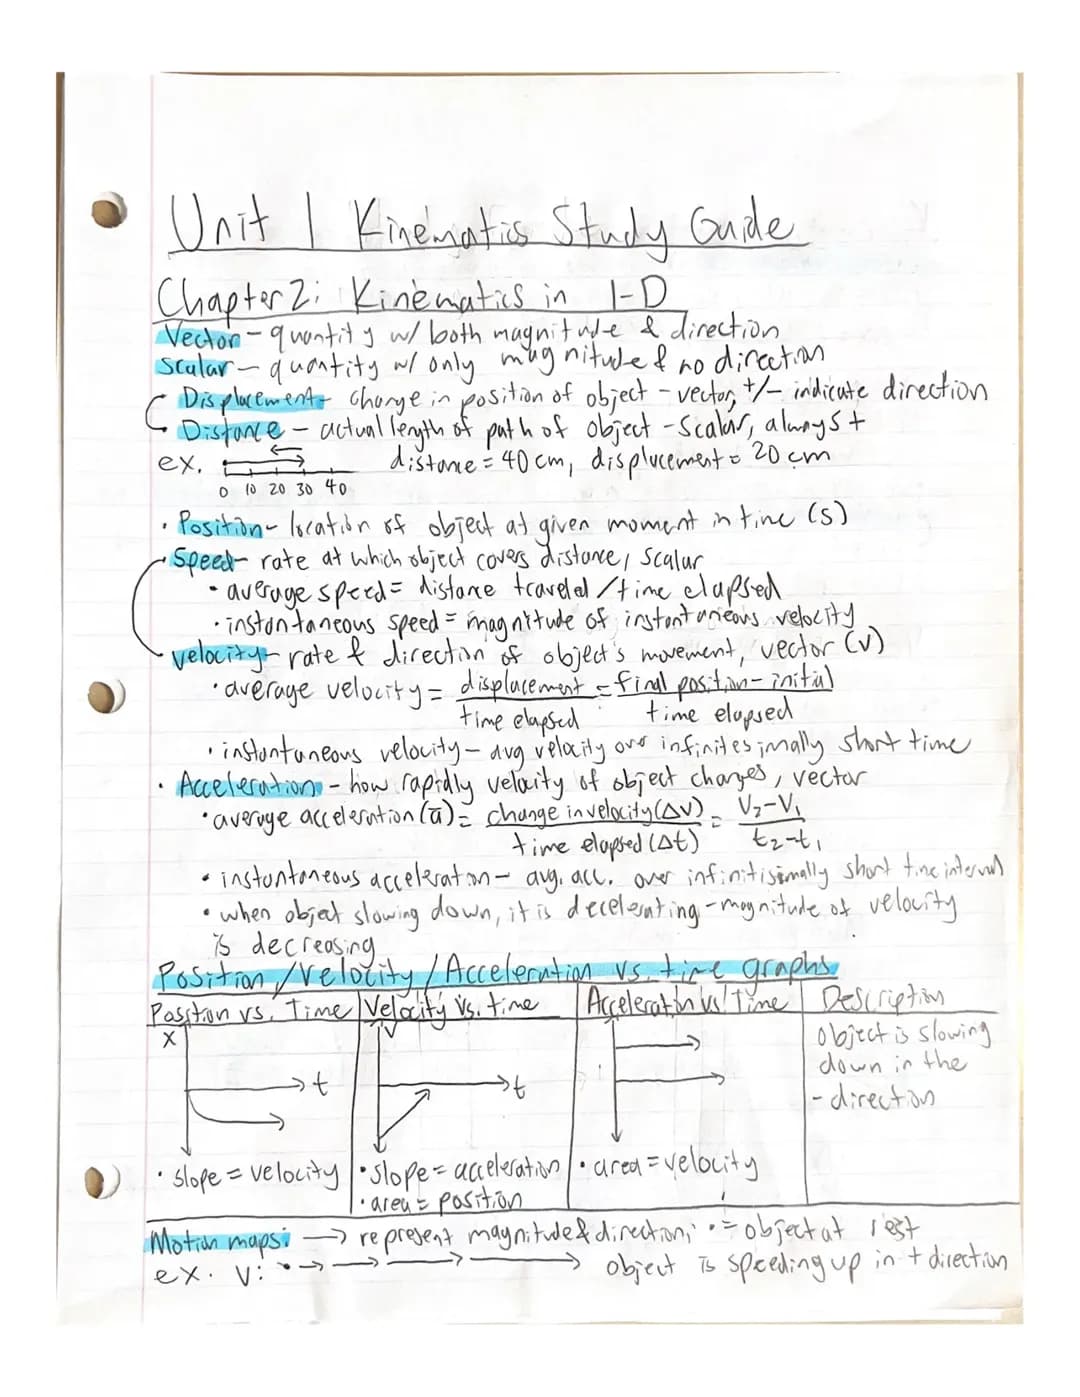 Unit 1 Kinematics Study Guide
Chapter 2: Kinematics in 1-D
Vector - quantity w/ both magnitude & direction
Scalar - quantity w/ only magnitude & no direction
Displacement - change in position of object - vector, +/- indicate direction
Distance - actual length of path of object - scalar, always +
ex. distance = 40 cm, displacement = 20 cm
0 10 20 30 40
• Position - location of object at given moment in time (s)
• Speed - rate at which object covers distance, scalar
• average speed = distance traveled / time elapsed
• instantaneous speed = magnitude of instantaneous velocity
• velocity - rate & direction of object's movement, vector (v)
• average velocity = displacement = final position - initial
time elapsed time elapsed
• instantaneous velocity - avg velocity over infinitesimally short time
• Acceleration - how rapidly velocity of object changes, vector
• average acceleration (a̅) = change in velocity (Δv) = V₂-V₁
time elapsed (Δt) t₂-t₁
• instantaneous acceleration - avg. acc. over infinitisimally short time interval
• when object slowing down, it is decelerating - magnitude of velocity
is decreasing
Position / Velocity / Acceleration vs. time graphs
Position vs. Time Velocity vs. time Acceleration vs. Time Description
x v Object is slowing
t t down in the
- direction
• slope = velocity • slope = acceleration • area = velocity
• area = position
Motion maps: → represent magnitude & direction; • = object at rest
ex. V: • → → → → object is speeding up in + direction